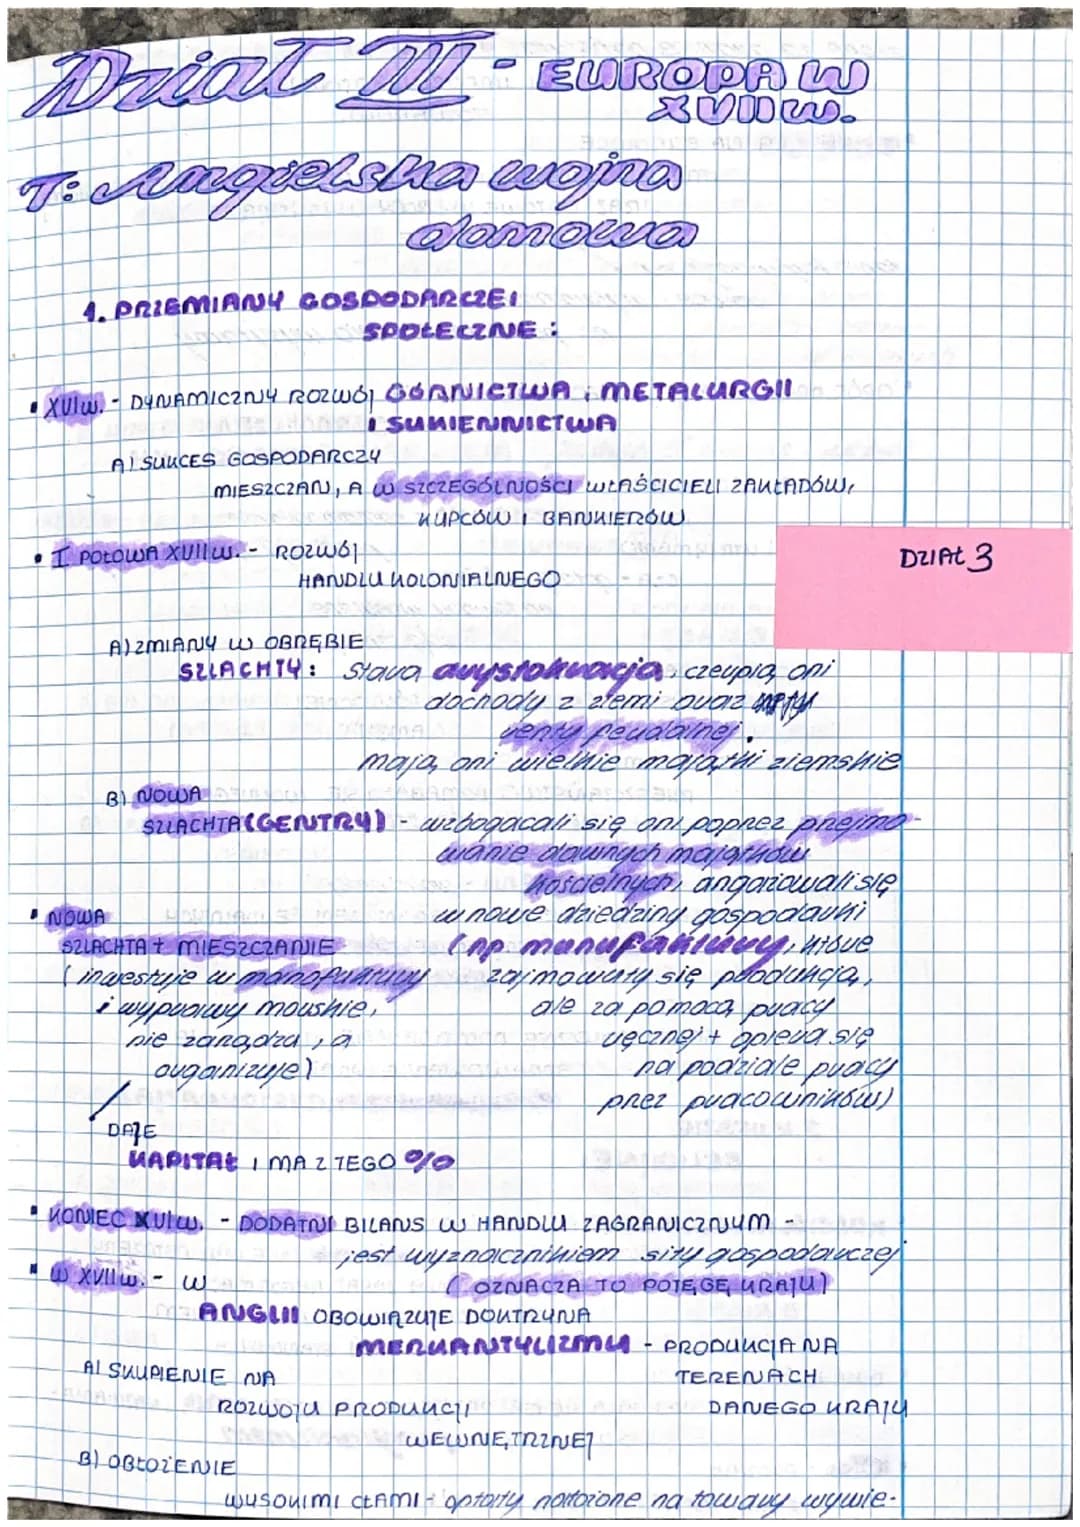 Dział III - EUROPA W
XVII w.
T: Angielska wojna
domowa
1. PRZEMIANY GOSPODARCZE I
SPOŁECZNE :
• XVI w. - DYNAMICZNY ROZWÓJ GÓRNICTWA, METALURGII
I SUKIENNICTWA
A) SUKCES GOSPODARCZY
MIESZCZAN, A W SZCZEGÓLNOŚCI WŁAŚCICIELI ZAKŁADÓW,
KUPCÓW I BANKIERÓW
• I POŁOWA XVII w. - ROZWÓJ
HANDLU KOLONIALNEGO
DZIAŁ 3
A) ZMIANY W OBRĘBIE
SZLACHTY: Stara arystokracja, czerpią oni
dochody z ziemi oraz
renty feudalnej.
mają oni wielkie majątki ziemskie
B) NOWA
SZLACHTA (GENTRY) - wzbogacali się oni poprzez przejmo-
wanie dawnych majątków
kościelnych, angażowali się
w nowe dziedziny gospodarki
(np. manufaktury, które
zajmowały się produkcją,
ale za pomocą pracy
ręcznej + opiera się
na podziale pracy
przez pracowników)
• NOWA
SZLACHTA + MIESZCZANIE
(inwestuje w manofaktury
i wyprawy morskie,
nie zarządza, a
organizuje)
/
DAJE
KAPITAŁ I MA Z TEGO %
• KONIEC XVI w. - DODATNI BILANS W HANDLU ZAGRANICZNYM -
jest wyznacznikiem siły gospodarczej
(OZNACZA TO POTĘGĘ KRAJU)
• W XVII w. - W
ANGLII OBOWIĄZUJE DOKTRYNA
MERKANTYLIZMU - PRODUKCJA NA
TERENACH
DANEGO KRAJU
A) SKUPIENIE NA
ROZWOJU PRODUKCJI
WEWNĘTRZNEJ
B) OBŁOŻENIE
WYSOKIMI CŁAMI - opłaty nałożone na towary wywie-